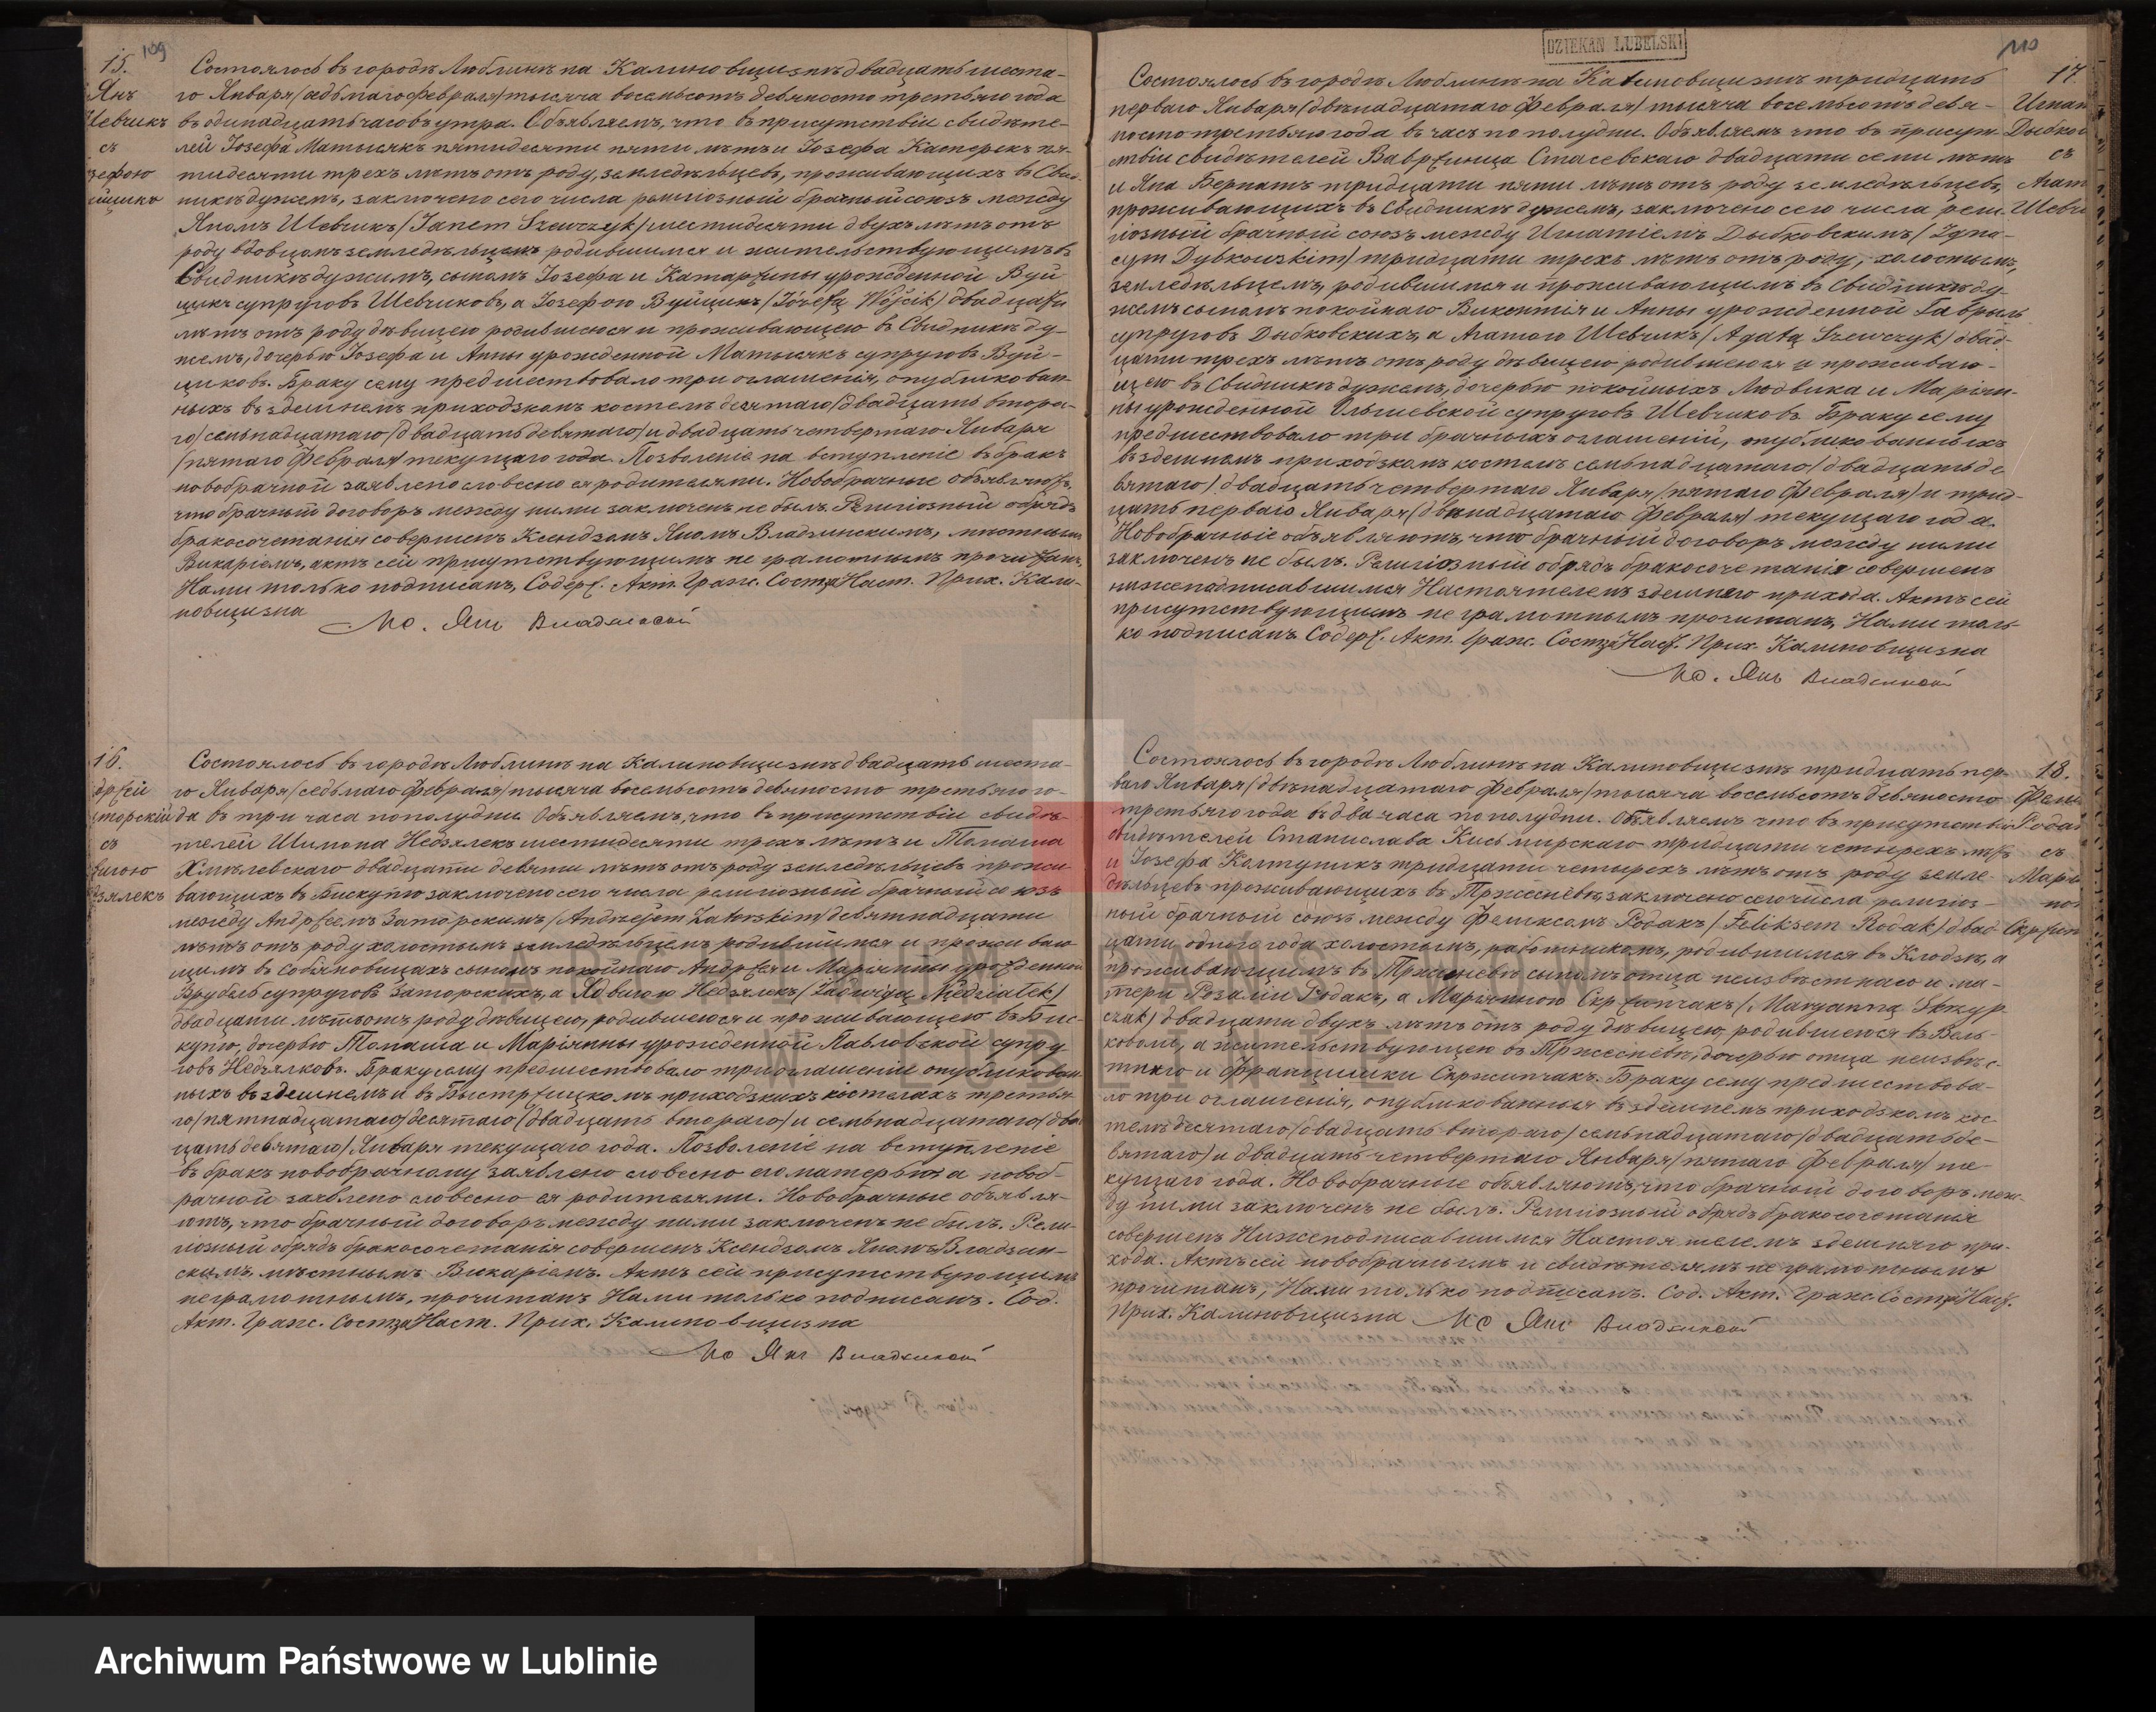 109
15.
Янъ
Шевчикъ
съ
зефою
йцикъ
Состоялось въ городѣ Люблинѣ на Калиновщизнѣ двадцать шеста-
го Января/седьмаго февраля/тысяча восемьсотъ девяносто третьяго года
въ одинадцать часовъ утра. Объявляемъ, что въ присутствіи свидѣте-
лей Іозефа Матысякъ пятидесяти пяти лѣтъ и Іозефа Каперекъ пя-
тидесяти трехъ лѣтъ отъ роду, земледѣльцевъ, проживающихъ въ Свид-
никѣ дужемъ, заключено сего числа религіозный брачный союзъ между
Яномъ Шевчикъ /Janem Szewczyk/ шестидесяти двухъ лѣтъ отъ
роду вдовцомъ земледѣльцемъ родившимся и жительствующимъ въ
Свидникѣ дужимъ, сыномъ Іозефа и Катарѓины урожденной Вуй
цикъ супруговъ Шевчиковъ, а Іозефою Вуйцикъ /Józefą Wójcik/ двадцати
лѣтъ отъ роду дѣвицею родившеюся и проживающею въ Свидникѣ ду-
жемъ, дочерью Іозефа и Анны урожденной Матысякъ супруговъ Вуй-
циковъ. Браку сему предшествовало три оглашенія, опубликован-
ныхъ въ здешнемъ приходзкомъ костелѣ десятаго/двадцать второ-
го/семьнадцатаго/двадцать девятаго/и двадцать четвертаго Января
/пятаго февраля/ текущаго года. Позволеніе на вступленіе въ бракъ
новобрачной заявлено словесно ея родителями. Новобрачные объявляютъ,
что брачный договоръ между ними заключенъ не былъ. Религіозный обрядъ
бракосочетанія совершенъ Ксендзомъ Яномъ Владзинскимъ, мѣстнымъ
Викаріемъ, актъ сей присутствующимъ не грамотнымъ прочитанъ,
Нами только подписанъ, Содерж. Акт. Гражд. Сост. Наст. Прих. Кали-
новщизна
Кс. Янъ Владзинскій
16.
држей
торскій
съ
вигою
дзялекъ
Состоялось въ городѣ Люблинѣ на Калиновщизнѣ двадцать шеста-
го Января/седьмаго февраля/тысяча восемьсотъ девяносто третьяго го-
да въ три часа пополудни. Объявляемъ, что въ присутствіи свидѣ-
телей Шимона Недзялекъ шестидесяти трехъ лѣтъ и Томаша
Хмѣлевскаго двадцати девяти лѣтъ отъ роду земледѣльцевъ прожи-
вающихъ въ Бискупю заключено сего числа религіозный брачный союзъ
между Андржеемъ Заторскимъ /Andrzejem Zatorskim/девятнадцати
лѣтъ отъ роду холостымъ земледѣльцемъ родившимся и прожива
щимъ въ Собяновицахъ сыномъ покойнаго Андржея и Маріянны урожденной
Врубель супруговъ Заторскихъ, а Ядвигою Недзялекъ /Jadwigą Niedziałek/
двадцати лѣтъ отъ роду дѣвицею, родившеюся и проживающею въ Бис-
купю, дочерью Томаша и Маріянны урожденной Павловской супру
говъ Недзялковъ. Браку сему предшествовало три оглашеніе опубликован
ныхъ въ здешнемъ и въ Быстржицкомъ приходзкихъ костелахъ третья-
го/пятнадцатаго/десятаго/двадцать втораго/и семьнадцатаго/два
цать девятаго/Января текущаго года. Позволеніе на вступленіе
въ бракъ новобрачному заявлено словесно его матерью, а новоб-
рачной заявлено словесно ея родителями. Новобрачные объявля-
ютъ, что брачный договоръ между ними заключенъ не былъ. Рели-
гіозный обрядъ бракосочетанія совершенъ Ксендзомъ Яномъ Владзин-
скимъ, мѣстнымъ Викаріемъ. Актъ сей присутствующимъ
неграмотнымъ, прочитанъ Нами только подписанъ. Сод.
Акт. Гражд. Сост. Наст. Прих. Калиновщизна
Кс Янъ Владзинскій
DZIEKAN LUBELSKI
110
17.
Игнат
Дыбков
съ
Агат
Шевч
Состоялось въ городѣ Люблинѣ на Калиновщизнѣ тридцать
перваго Января/двѣнадцатаго февраля/ тысяча восемьсотъ девя-
носто третьяго года въ часъ по полудни. Объявляемъ что въ присут-
ствіи свидѣтелей Вавржинца Стасевскаго двадцати семи лѣтъ
и Яна Бернатъ тридцати пяти лѣтъ отъ роду земледѣльцевъ,
проживающихъ въ Свидникѣ дужемъ, заключено сего числа рели-
гіозный брачный союзъ между Игнатіемъ Дыбковскимъ /Igna-
cym Dybkowskim/ тридцати трехъ лѣтъ отъ роду, холостымъ,
земледѣльцемъ, родившимся и проживающимъ въ Свидникѣ ду-
жемъ сыномъ покойнаго Викентія и Анны урожденной Габрыль
супруговъ Дыбковскихъ, а Агатою Шевчикъ /Agatą Szewczyk/ двад-
цати трехъ лѣтъ отъ роду дѣвицею родившеюся и проживаю-
щею въ Свидникѣ дужемъ, дочерью покойныхъ Людвика и Маріян-
ны урожденной Ольшевской супруговъ Шевчиковъ. Браку сему
предшествовало три брачныхъ оглашеній, опубликованныхъ
въ здешнемъ приходзкомъ костелѣ семьнадцатаго/двадцать де
вятаго/ двадцать четвертаго Января/пятаго февраля/ и трид-
цать перваго Января/двѣнадцатаго февраля/ текущаго года.
Новобрачные объявляютъ, что брачный договоръ между ними
заключенъ не былъ. Религіозный обрядъ бракосочетанія совершенъ
нижеподписавшимся Настоятелемъ здешняго прихода. Актъ сей
присутствующимъ не грамотнымъ прочитанъ, Нами толь-
ко подписанъ Содерж. Акт. Гражд. Сост. Наст. Прих. Калиновщизна
Кс. Янъ Владзинскій
18.
Фели
Родак
съ
Марі
но
Скржип
Состоялось въ городѣ Люблинѣ на Калиновщизнѣ тридцать пер-
ваго Января/двѣнадцатаго февраля/тысяча восемьсотъ девяносто
третьяго года въ два часа по полудни. Объявляемъ что въ присутствіи
свидѣтелей Станислава Кисьмирскаго тридцати четырехъ лѣтъ
и Іозефа Колтуникъ тридцати четырехъ лѣтъ отъ роду земле-
дѣльцевъ проживающихъ въ Тржесневѣ, заключено сего числа религіоз-
ный брачный союзъ между Феликсомъ Родакъ /Feliksem Rodak/ двад-
цати одного года холостымъ, работникомъ, родившимся въ Клодзѣ, а
проживающимъ въ Тржесневѣ сыномъ отца неизвѣстнаго и ма-
тери Розаліи Родакъ, а Маріянною Скржипчакъ /Maryanną Skrzyp
czak/ двадцати двухъ лѣтъ отъ роду дѣвицею, родившеюся въ Вель-
коволѣ, а жительствующею въ Тржесневѣ, дочерью отца неизвѣс-
тнаго и Францишки Скржипчакъ. Браку сему предшествова-
ло три оглашенія, опубликованныя въ здешнемъ приходзкомъ кос
телѣ десятаго/двадцать втораго/ семьнадцатаго/двадцать де-
вятаго/ и двадцать четвертаго Января/пятаго февраля/ те-
кущаго года. Новобрачные объявляютъ, что брачный договоръ меж-
ду ними заключенъ не былъ. Религіозный обрядъ бракосочетанія
совершенъ Нижеподписавшимся Настоятелемъ здешняго при-
хода. Актъ сей новобрачнымъ и свидѣтелямъ неграмотнымъ
прочитанъ, Нами только подписанъ. Сод. Акт. Гражд. Сост. Наст.
Прих. Калиновщизна Кс Янъ Владзинскій
ARCHIWUM PAŃSTWOWE
W LUBLINIE
Archiwum Państwowe w Lublinie